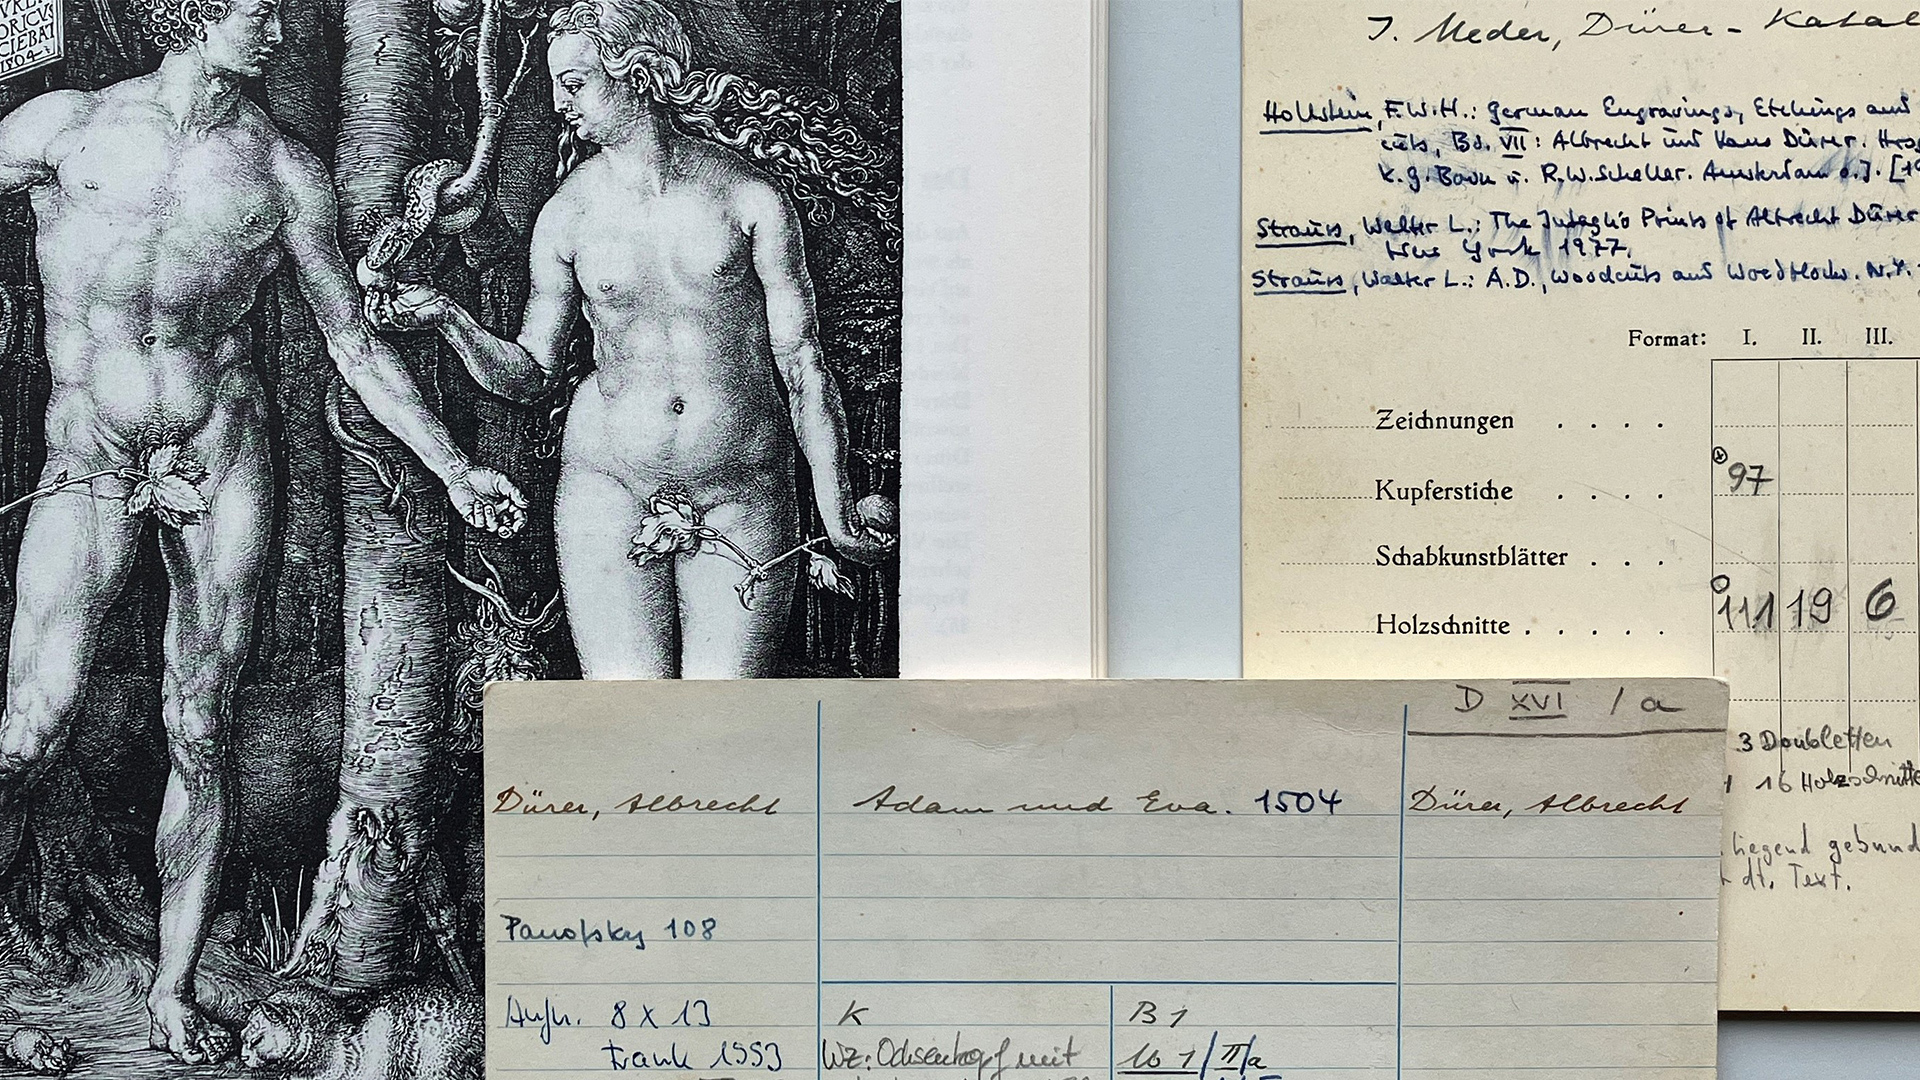 ORICVS
1504
J. Meder, Dürer-Katal
Hollstein, F.W.H.: German Engravings, Etchings and
cuts, Bd. VII: Albrecht und Hans Dürer. Hrsg
K.G. Boon u. R.W. Scheller. Amsterdam o.J. [19
Strauss, Walter L.: The Intaglio Prints of Albrecht Dürer
New York 1977.
Strauss, Walter L.: A.D., Woodcuts and Woodblocks. N.Y.
Format: I. II. III.
Zeichnungen . . . .
Kupferstiche . . . . 97
Schabkunstblätter . . .
Holzschnitte . . . . . 111 19 6
3 Doubletten
16 Holzschnitte
liegend gebund
dt. Text.
D XVI / a
Dürer, Albrecht Adam und Eva. 1504 Dürer, Albrecht
Panofsky 108
Aufn. 8 x 13 K B 1
Frank 1993 Wz: Ochsenkopf mit M 1/II/a